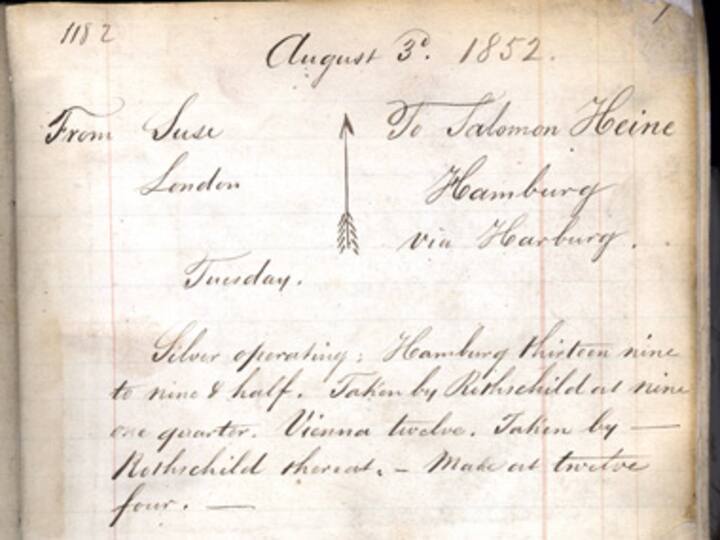 1182
August 3d. 1852.
From Suse To Salomon Heine
London Hamburg
via Harburg.
Tuesday.
Silver operating; Hamburg thirteen nine
to nine & half. Taken by Rothschild at nine
one quarter. Vienna twelve. Taken by —
Rothschild thereat. — Make at twelve
four. —